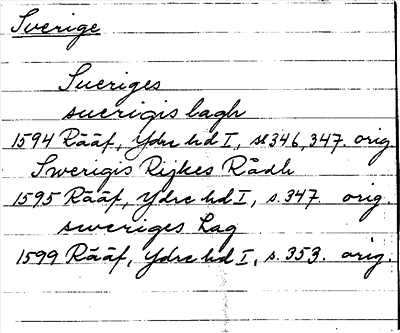 Sverige
Sueriges
suerigis lagh
1594 Rääf, Ydre hd I, s. 346, 347. orig.
Swerigis Rijkes Rådh
1595 Rääf, Ydre hd I, s. 347 orig.
sweriges Lag
1599 Rääf, Ydre hd I, s. 353. orig.